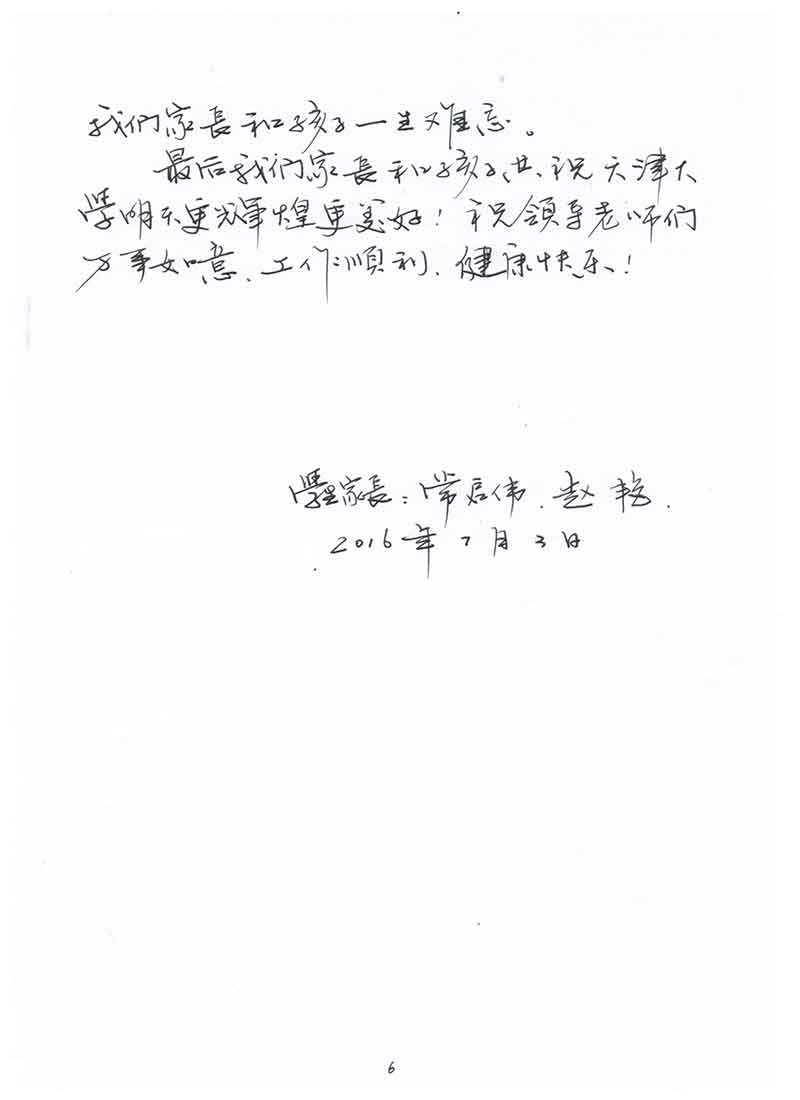 我们家長和孩子一生难忘。
最后我们家長和孩子共祝天津大
學明天更辉煌更美好！祝領导老师们
万事如意、工作順利、健康快乐！
學生家長：常启伟、赵艳.
2016年7月3日
6